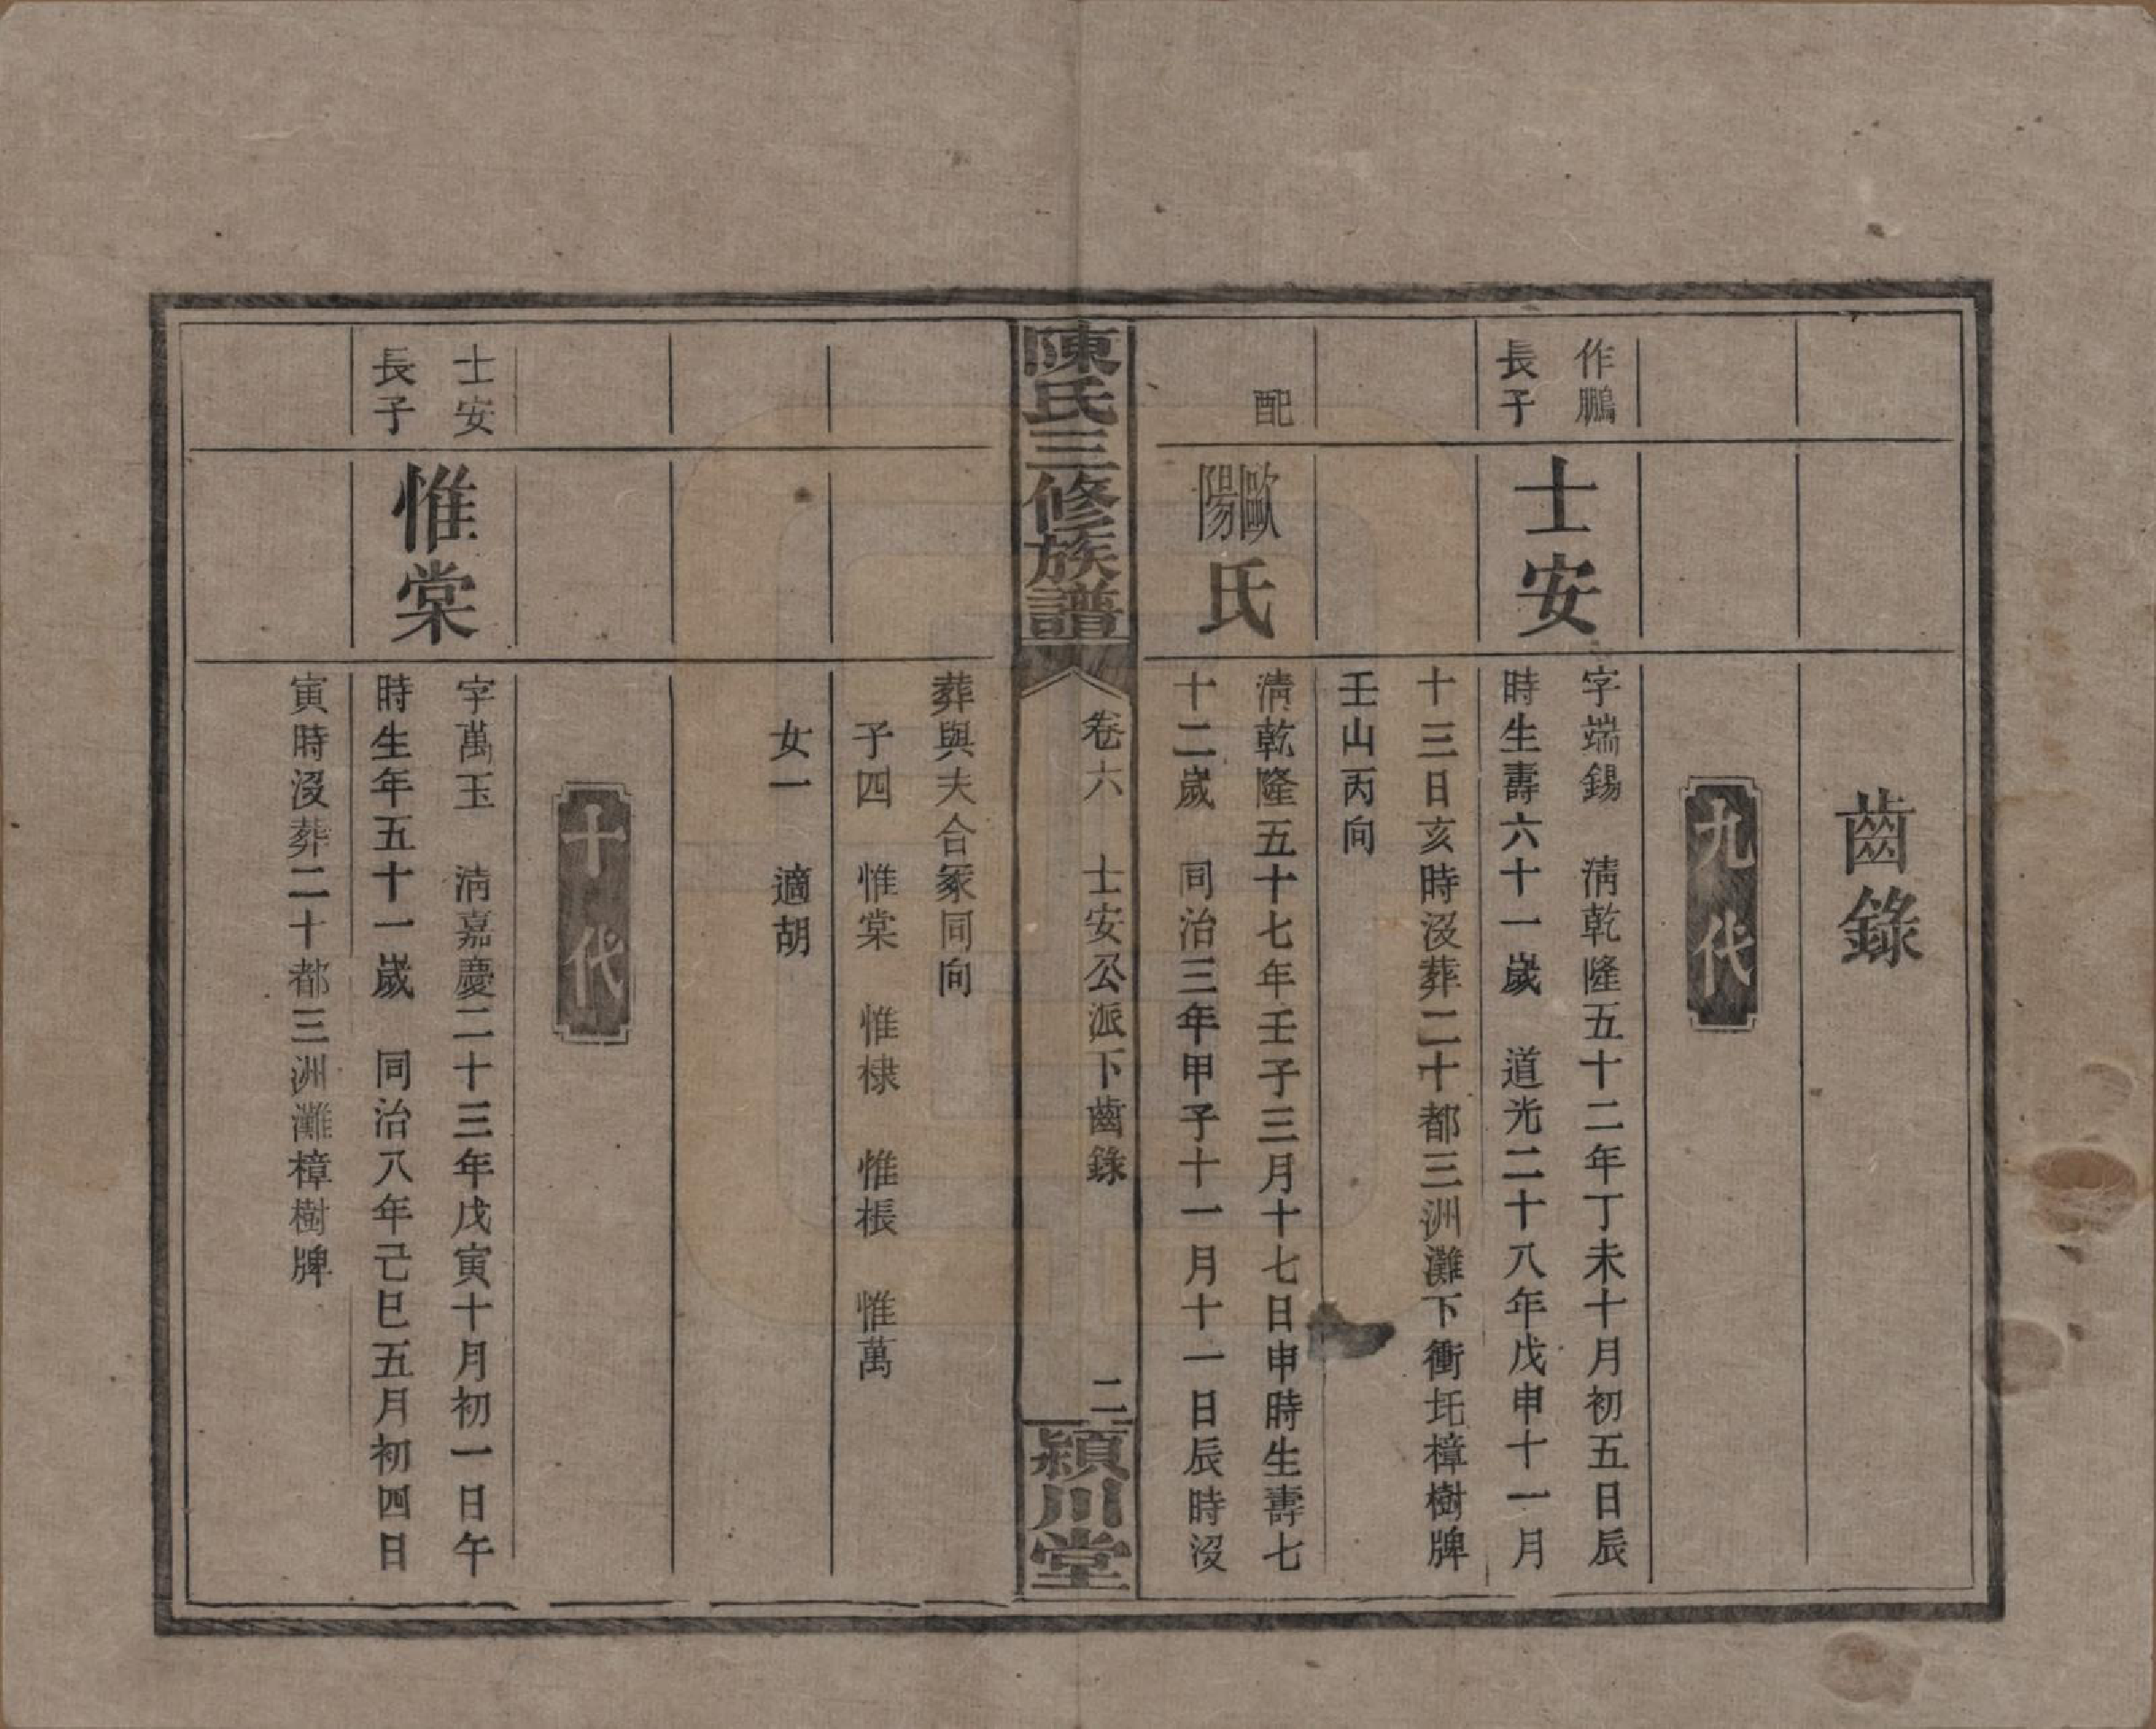 齒錄
九代
作鵬
長子
士安
字端錫　清乾隆五十二年丁未十月初五日辰
時生壽六十一歲　道光二十八年戊申十一月
十三日亥時沒葬二十都三洲灘下衝圫樟樹牌
壬山丙向
配
歐陽氏
清乾隆五十七年壬子三月十七日申時生壽七
十二歲　同治三年甲子十一月十一日辰時沒
陳氏三修族譜
卷六　士安公派下齒錄　二
潁川堂
葬與夫合冢同向
子四　惟棠　惟棣　惟棖　惟萬
女一　適胡
十代
士安
長子
惟棠
字萬玉　清嘉慶二十三年戊寅十月初一日午
時生年五十一歲　同治八年己巳五月初四日
寅時沒葬二十都三洲灘樟樹牌